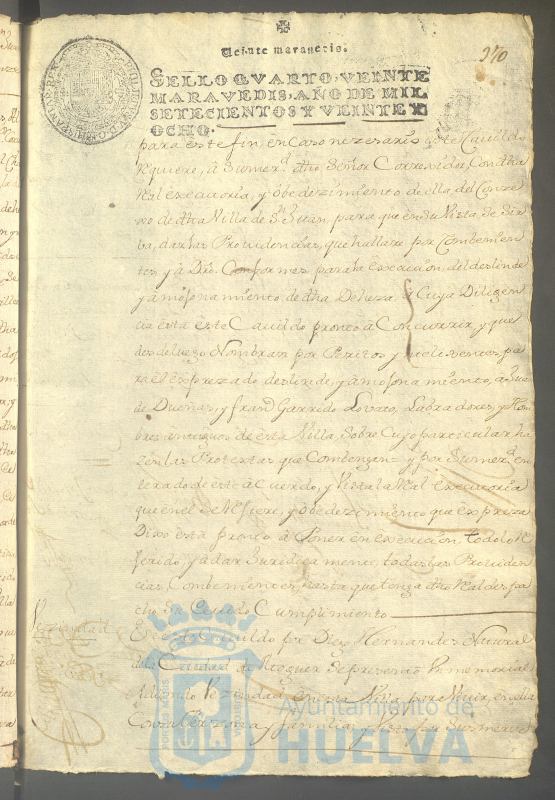 370
Veinte maravedis.
SELLO QVARTO, VEINTE
MARAVEDIS, AÑO DE MIL
SETECIENTOS Y VEINTE Y
OCHO.
para este fin, en Caso nezesario este Cavildo
Requiere, â Sumerd. dho Señor Corregidor, Con dha
Real executoria, y obedezimiento de ella del Conze
de dha Villa de Sn. Juan, para que en su Vista, se Sir
ba, dar las Providencias, que hallare por Combenien
tes, y â Dro. Conformes para la execucion del deslinde
y amojonamiento de dha Deheza, â Cuya Diligen
cia està este Cavildo pronto â Concurrir, y que
desde luego Nombran por Peritos y
ra el expresado deslinde, y amojonamiento, a
de Dueñas, y Frando. Garrido Lovato, Labradores, y Hom
bres antiguos de esta Villa, Sobre Cuyo particular ha
zen las Protextas que Combengan = y por Sumerd. en
terado de este acuerdo, y Vista la Real executoria
que en el Se Refiere, y obedezimiento que expreza
Dixo està pronto â Poner en execucion, todo lo Re
ferido, y â dar Juridica mente, todas las Providen
cias, Combenientes, hasta que tenga dho Real despa
cho Su devido Cumplimiento
Vezindad
En este Cavildo por Diego Hernandez Natural
de la Ciud. de Moguer Se presentò Un memorial
Pidiendo Vezindad en esta Villa por Vivir en ella
Con su Caza y familia, y Visto por Sus mercedes
PORTUS MARIS
Ayuntamiento de
HUELVA